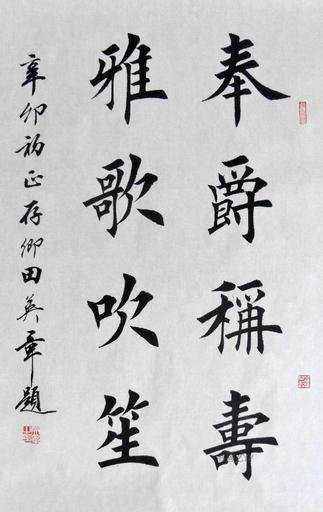 奉爵稱壽
雅歌吹笙
辛卯初正存卿田英章題